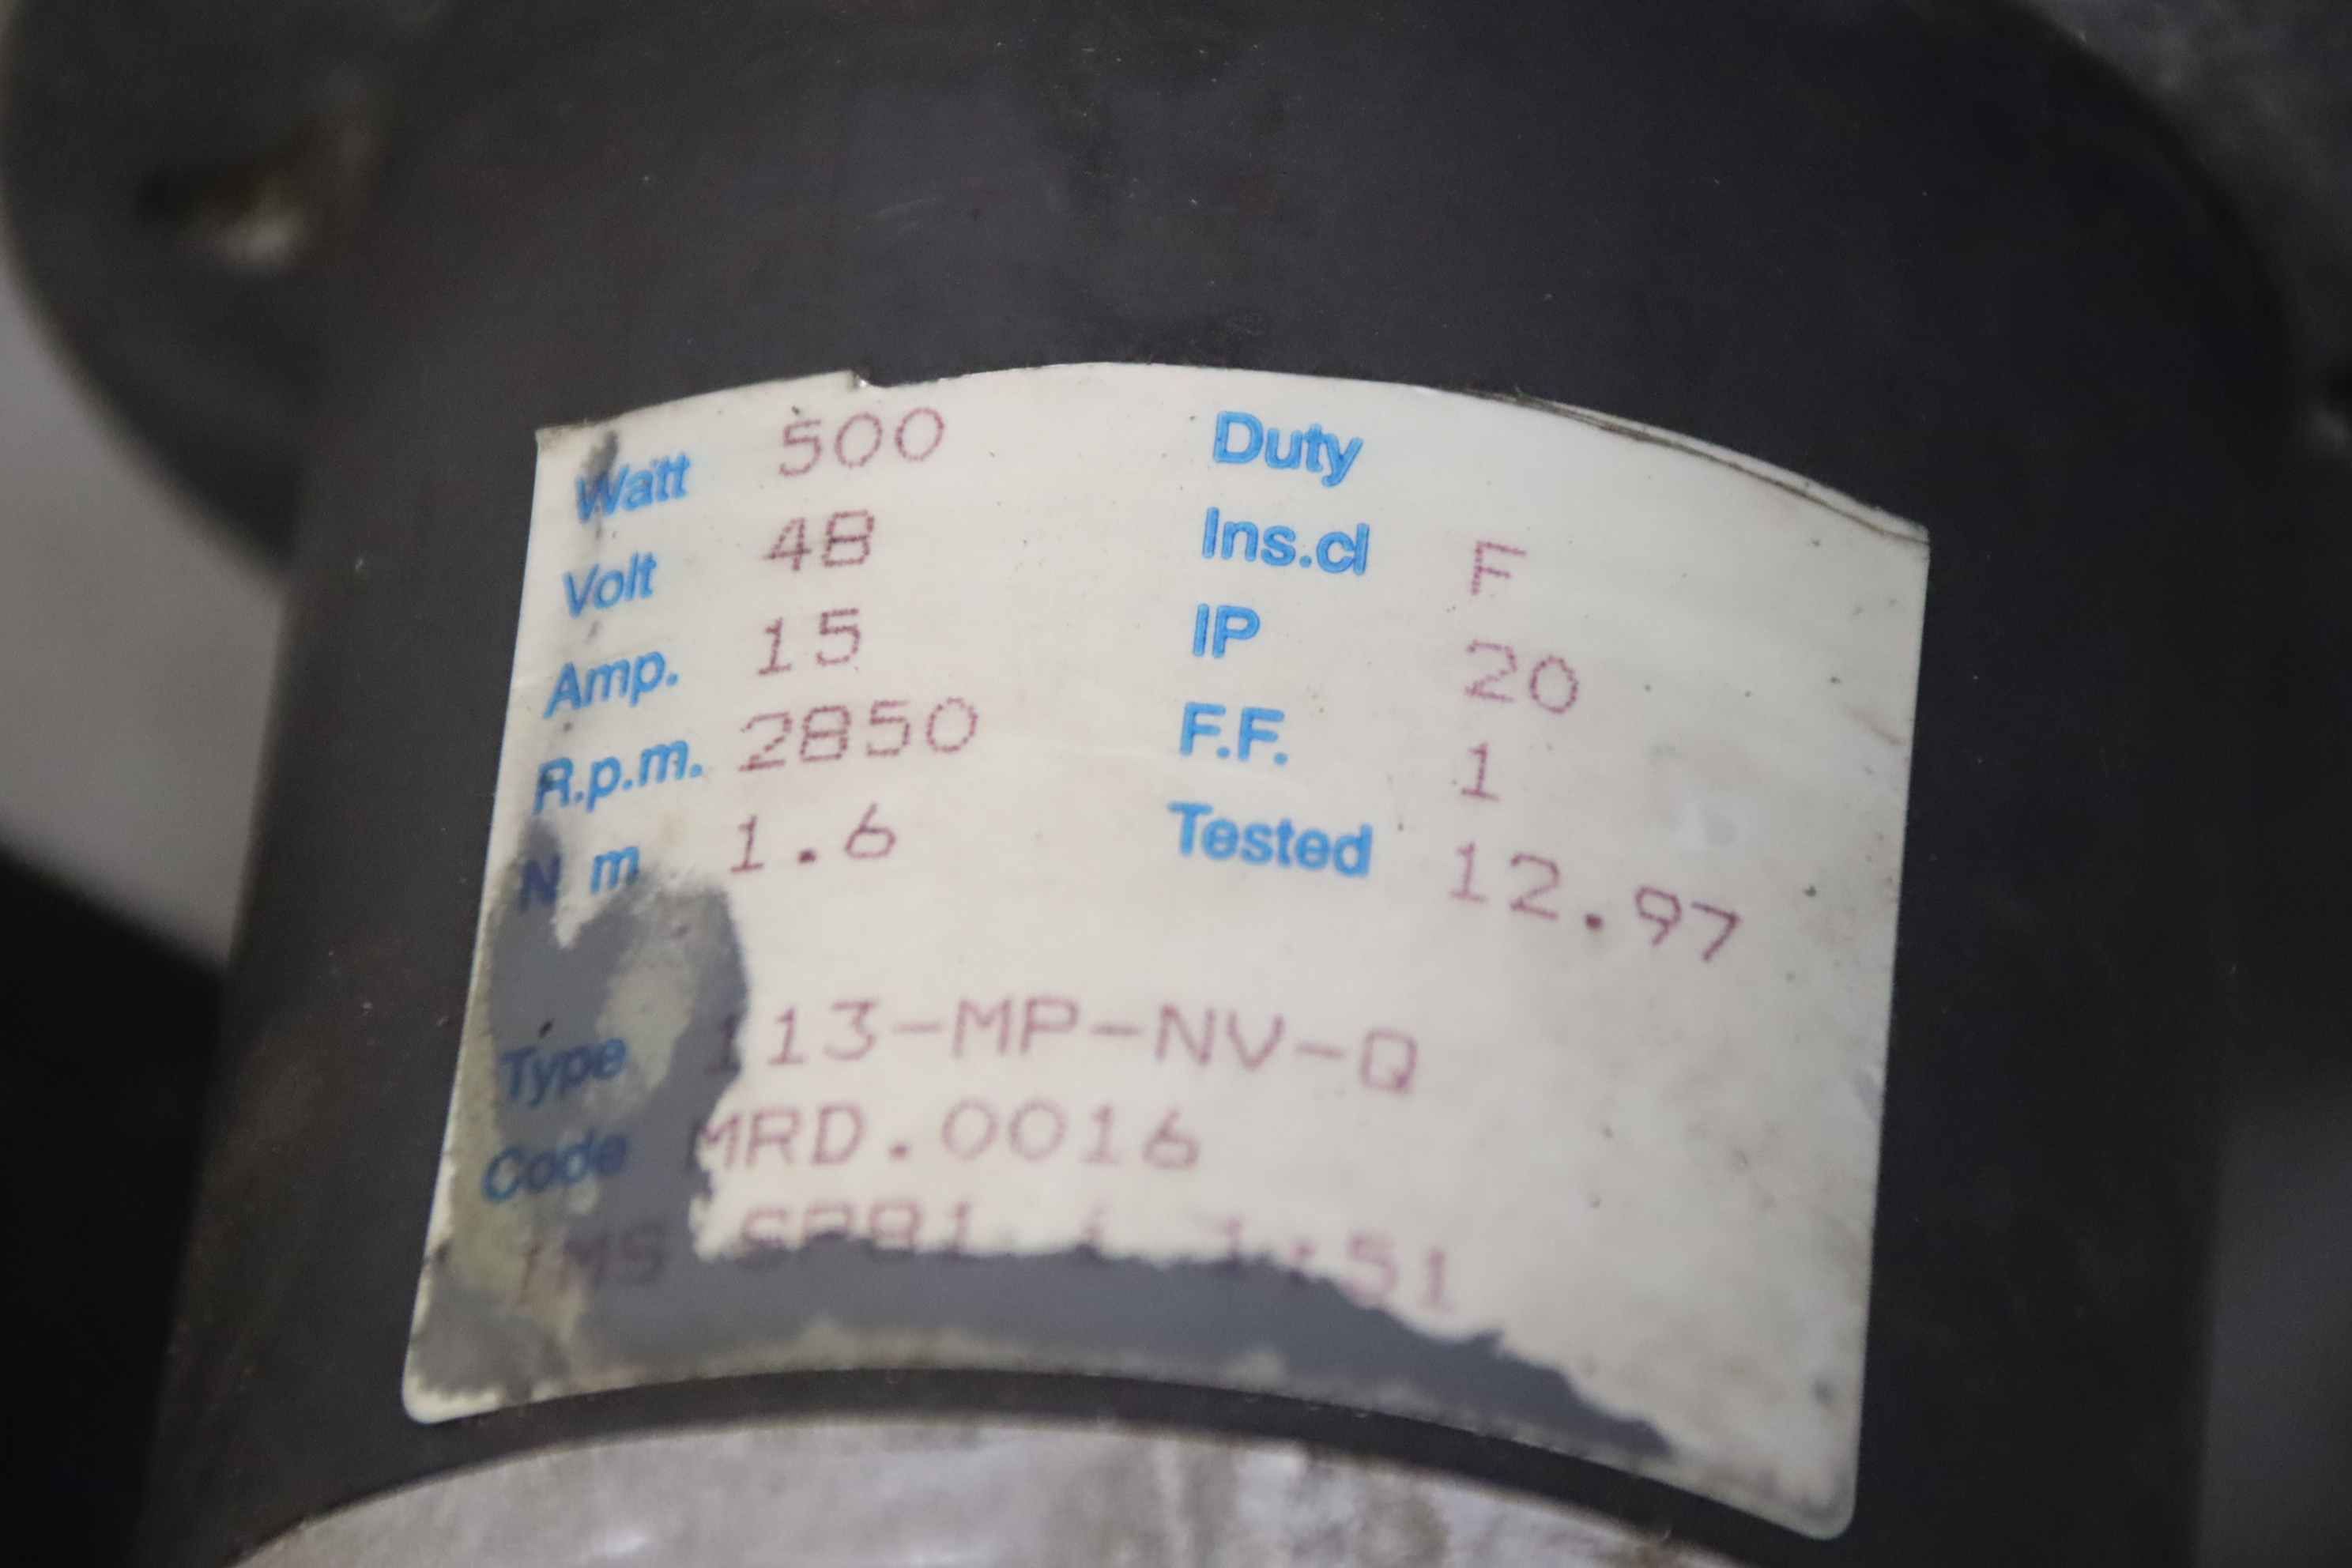 Watt 500
Volt 48
Amp. 15
R.p.m. 2850
N m 1.6
Duty
Ins.cl F
IP 20
F.F. 1
Tested 12.97
Type 113-MP-NV-Q
Code MRD.0016